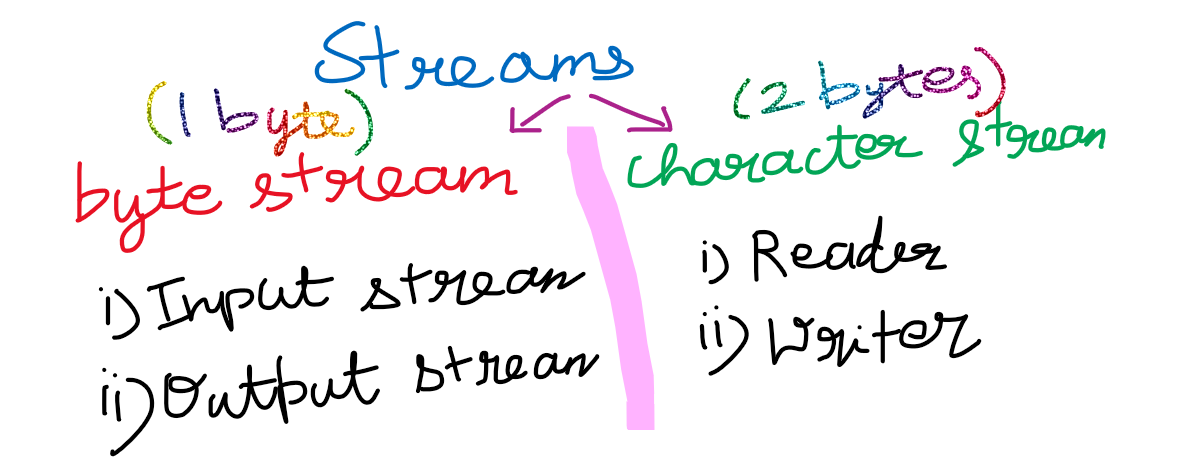 Streams
(1 byte)
byte stream
i) Input strean
ii) Output strean
(2 bytes)
character strean
i) Reader
ii) Writer